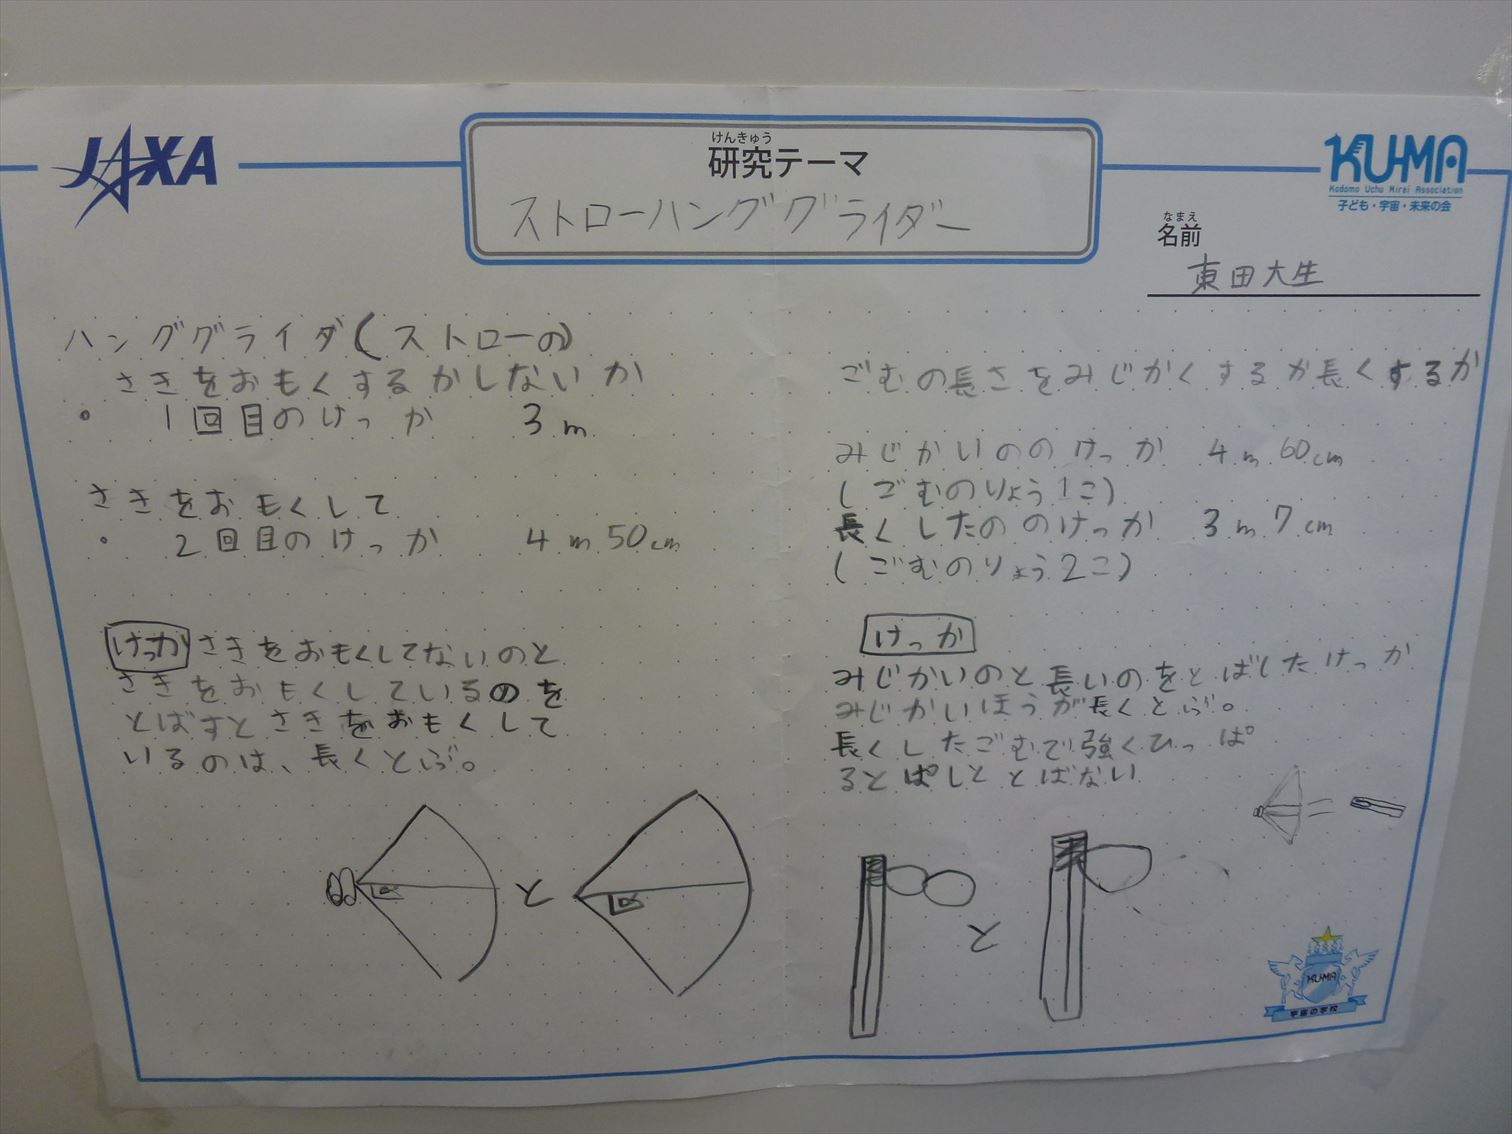 JAXA
けんきゅう
研究テーマ
ストローハンググライダー
KU-MA
Kodomo Uchu Mirai Association
子ども・宇宙・未来の会
なまえ
名前
東田大生
ハンググライダ(ストローの)
さきをおもくするかしないか
・ 1回目のけっか 3m
さきをおもくして
・ 2回目のけっか 4m50cm
けっか さきをおもくしてないのと
さきをおもくしているのを
とばすとさきをおもくして
いるのは、長くとぶ。
と
ごむの長さをみじかくするか長くするか
みじかいののけっか 4m60cm
(ごむのりょう1こ)
長くしたののけっか 3m7cm
(ごむのりょう2こ)
けっか
みじかいのと長いのをとばしたけっか
みじかいほうが長くとぶ。
長くしたごむで強くひっぱ
るとぱしととばない
と
KU-MA
宇宙の学校